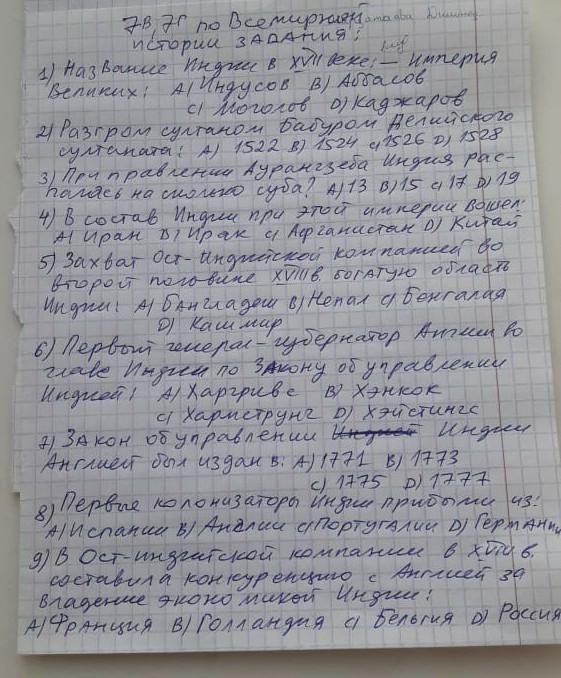 7В, 7Г по Всемирной
истории ЗАДАНИЯ:
1) Название Индии в XVII веке: – Империя
Великих: А) Индусов В) Аббасов
С) Моголов D) Каджаров
2) Разгром султаном Бабуром Делийского
султаната: А) 1522 В) 1524 С) 1526 D) 1528
3) При правлении Аурангзеба Индия рас-
палась на сколько суба? А) 13 В) 15 С) 17 D) 19
4) В состав Индии при этой империи вошел:
А) Иран В) Ирак С) Афганистан D) Китай
5) Захват Ост-Индийской компанией во
второй половине XVIII в. богатую область
Индии: А) Бангладеш В) Непал С) Бенгалая
D) Кашмир
6) Первый генерал-губернатор Англии во
главе Индии по Закону об управлении
Индией: А) Харгривс В) Хэнкок
С) Хариструнг D) Хэйстингс
7) Закон об управлении Индией Индии
Англией был издан в: А) 1771 В) 1773
С) 1775 D) 1777
8) Первые колонизаторы Индии прибыли из:
А) Испании В) Англии С) Португалии D) Германии
9) В Ост-индийской компании в XVII в.
составила конкуренцию с Англией за
владение экономикой Индии:
А) Франция В) Голландия С) Бельгия D) Россия